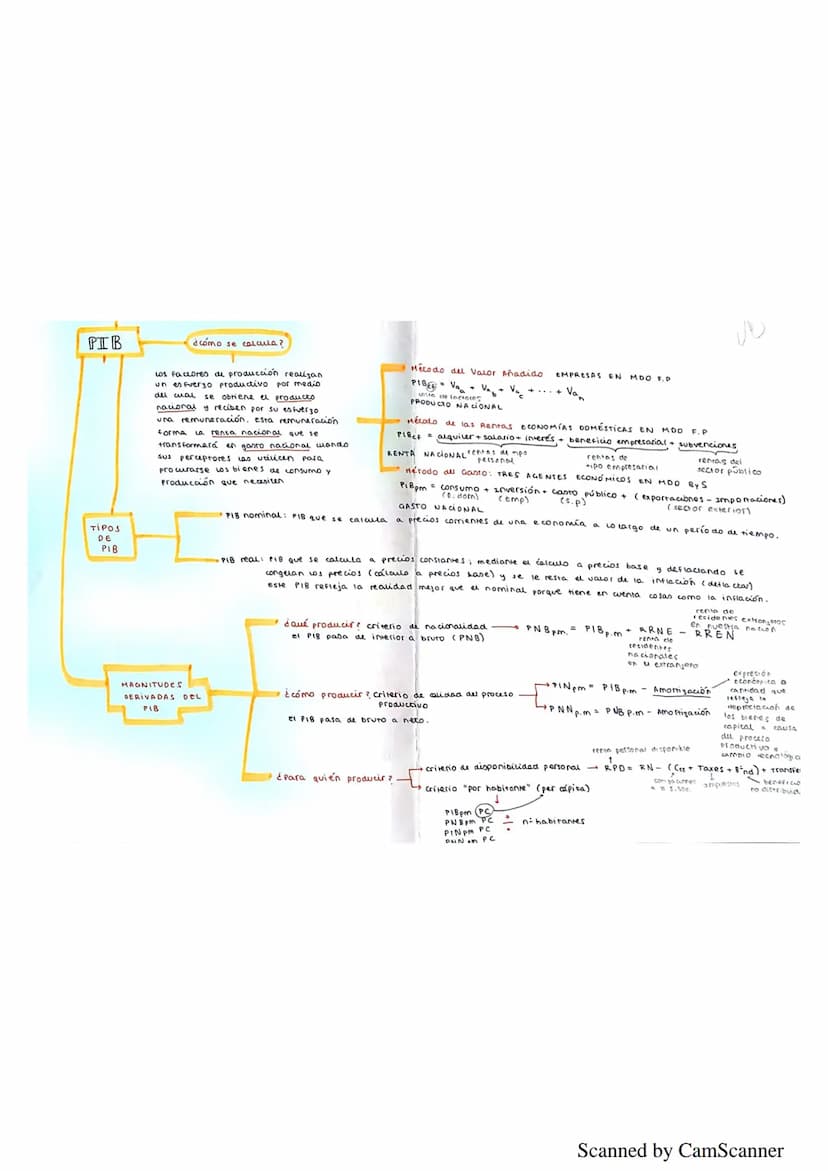 PIB
¿cómo se calcula?
Los factores de producción realizan
un esfuerzo productivo por medio
del cual se obtiene el producto
nacional y reciben por su esfuerzo
una remuneración. Esta remuneración
forma la renta nacional que se
transformará en gasto nacional cuando
sus perceptores las utilicen para
procurarse los bienes de consumo y
producción que necesiten
Método del Valor Añadido EMPRESAS EN MDO F.P
PIBCF = Vaa + Vab + Vac + ... + Van
PRODUCTO NACIONAL
Método de las Rentas ECONOMÍAS DOMÉSTICAS EN MDO F.P
PIBCF = alquiler + salario + interés + beneficio empresarial + subvenciones
RENTA NACIONAL
rentas de tipo personal
rentas de tipo empresarial
rentas del sector público
Método del Gasto: TRES AGENTES ECONÓMICOS EN MDO ByS
PIBpm = consumo + inversión + Gasto público + (exportaciones - importaciones)
(e. dom) (emp) (s.p) (sector exterior)
GASTO NACIONAL
TIPOS
DE
PIB
PIB nominal: PIB que se calcula a precios corrientes de una economía a lo largo de un período de tiempo.
PIB real: PIB que se calcula a precios constantes; mediante el cálculo a precios base y deflactando se
congelan los precios (cálculo a precios base) y se le resta el valor de la inflación (deflactar)
este PIB refleja la realidad mejor que el nominal porque tiene en cuenta cosas como la inflación.
MAGNITUDES
DERIVADAS DEL
PIB
¿Qué producir? criterio de nacionalidad
el PIB pasa de interior a bruto (PNB)
PNBp.m = PIBp.m + RRNE - RREN
renta de
residentes
nacionales
en el extranjero
renta de
residentes extranjeros
en nuestra nación
¿cómo producir? criterio de calidad del proceso
productivo
el PIB pasa de bruto a neto.
PINpm = PIBp.m - Amortización
PNNp.m = PNBp.m - Amortización
expresión
económica o
cantidad que
refleja la
depreciación de
los bienes de
capital a causa
del proceso
productivo o
cambio tecnológico
¿Para quién producir?
criterio de disponibilidad personal
renta personal disponible
RPD = RN - (Css + Taxes + Bºnd) + Transfe
impuestos
beneficio
no distribuid
criterio "por habitante" (per cápita)
PIBpm PC
PNBpm PC
PINpm PC
PNNpm PC
÷ nº habitantes
Scanned by CamScanner